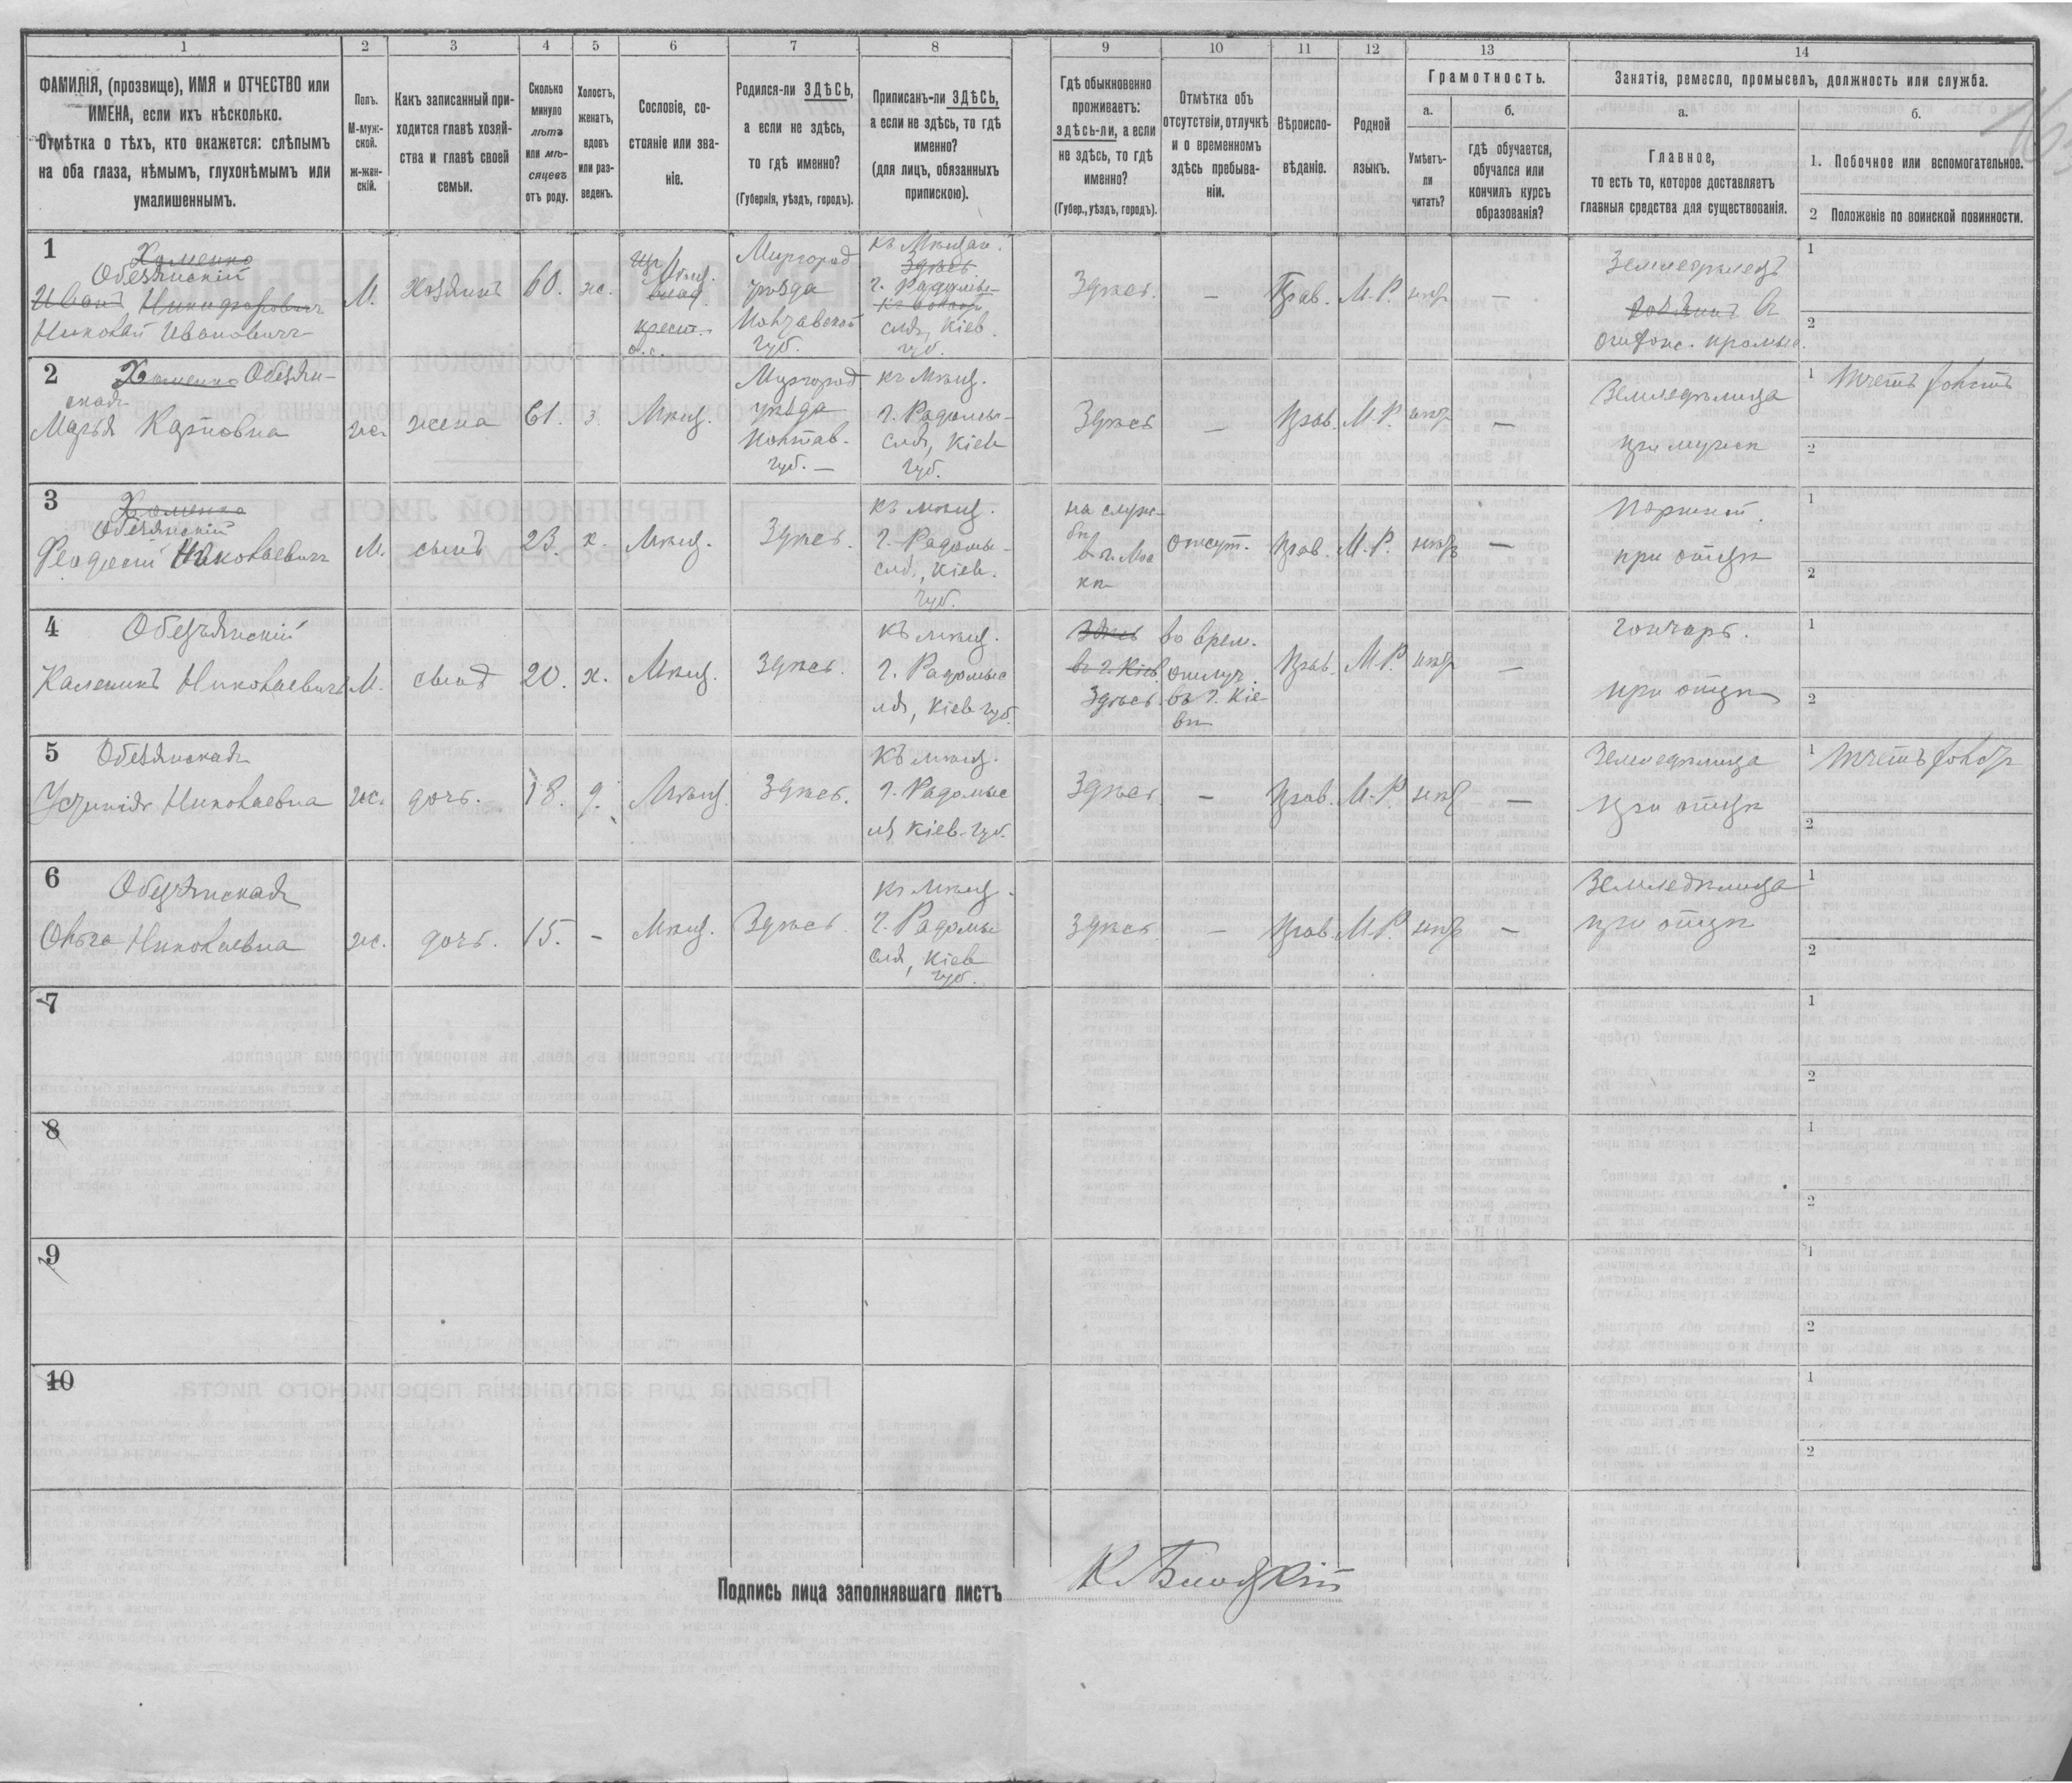 1 2 3 4 5 6 7 8 9 10 11 12 13 14
ФАМИЛІЯ, (прозвище), ИМЯ и ОТЧЕСТВО или
ИМЕНА, если ихъ нѣсколько.
Отмѣтка о тѣхъ, кто окажется: слѣпымъ
на оба глаза, нѣмымъ, глухонѣмымъ или
умалишеннымъ.
Полъ.
М-муж-
ской.
ж-жен-
скій.
Какъ записанный при-
ходится главѣ хозяй-
ства и главѣ своей
семьи.
Сколько
минуло
лѣтъ
или мѣ-
сяцевъ
отъ роду.
Холостъ,
женатъ,
вдовъ
или раз-
веденъ.
Сословіе, со-
стояніе или зва-
ніе.
Родился-ли ЗДѢСЬ,
а если не здѣсь,
то гдѣ именно?
(Губернія, уѣздъ, городъ).
Приписанъ-ли ЗДѢСЬ,
а если не здѣсь, то гдѣ
именно?
(для лицъ, обязанныхъ
припискою).
Гдѣ обыкновенно
проживаетъ:
здѣсь-ли, а если
не здѣсь, то гдѣ
именно?
(Губер., уѣздъ, городъ).
Отмѣтка объ
отсутствіи, отлучкѣ
и о временномъ
здѣсь пребыва-
ніи.
Вѣроиспо-
вѣданіе.
Родной
языкъ.
Грамотность.
а.
Умѣетъ-
ли
читать?
б.
гдѣ обучается,
обучался или
кончилъ курсъ
образованія?
Занятія, ремесло, промыселъ, должность или служба.
а.
Главное,
то есть то, которое доставляетъ
главныя средства для существованія.
б.
1. Побочное или вспомогательное.
2 Положеніе по воинской повинности.
1
Хоменко
Обезянскій
Иванъ Никифоровичъ
Николай Ивановичъ
М.
хозяинъ
60.
ж.
Мѣщ.
крест.
Миргород
уѣзда
Полтавской
губ.
къ Мѣщан.
Здѣсь
г. Радомы-
сля, Кіев.
губ.
Здѣсь.
—
Прав.
М.Р.
нѣт
—
Земледѣлецъ
хозяинъ
1
2
2
Хоменко Обезян-
ская
Марья Карповна
ж.
жена
61.
з.
Мѣщ.
Миргород
уѣзда
Полтав.
губ. —
къ Мѣщ.
г. Радомы-
сля, Кіев
губ.
Здѣсь
—
Прав.
М.Р.
нѣт
—
Земледѣлица
при мужѣ
1
2
3
Хоменко
Обезянскій
Феодосій Николаевичъ
М.
сынъ
23.
х.
Мѣщ.
Здѣсь.
къ мѣщ.
г. Радомы-
сля, Кіев.
губ.
на служ-
бѣ
в г. Мос
кв
отсут.
Прав.
М.Р.
нѣтъ
—
при отцѣ
1
2
4
Обезьянскій
Каленикъ Николаевичъ
М.
сынъ
20.
х.
Мѣщ.
Здѣсь.
къ мѣщ.
г. Радомыс
ля, Кіев губ.
Здѣсь
в г. Кіев.
Здѣсь.
во врем.
отлуч.
въ г. Кіе
вѣ
Прав.
М.Р.
нѣт
—
гончаръ.
при отцѣ
1
2
5
Обезянская
Устинія Николаевна
ж.
дочь.
18.
д.
Мѣщ.
Здѣсь.
къ мѣщ.
г. Радомыс
ля Кіев. губ.
Здѣсь
—
Прав.
М.Р.
нѣт
—
Земледѣлица
при отцѣ
1
2
6
Обезянская
Ольга Николаевна
ж.
дочь.
15.
-
Мѣщ.
Здѣсь.
къ мѣщ.
г. Радомы
сля, Кіев
губ.
Здѣсь
—
Прав.
М.Р.
нѣт
—
Земледѣлица
при отцѣ
1
2
7
1
2
8
1
2
9
1
2
10
1
2
Подпись лица заполнявшаго листъ